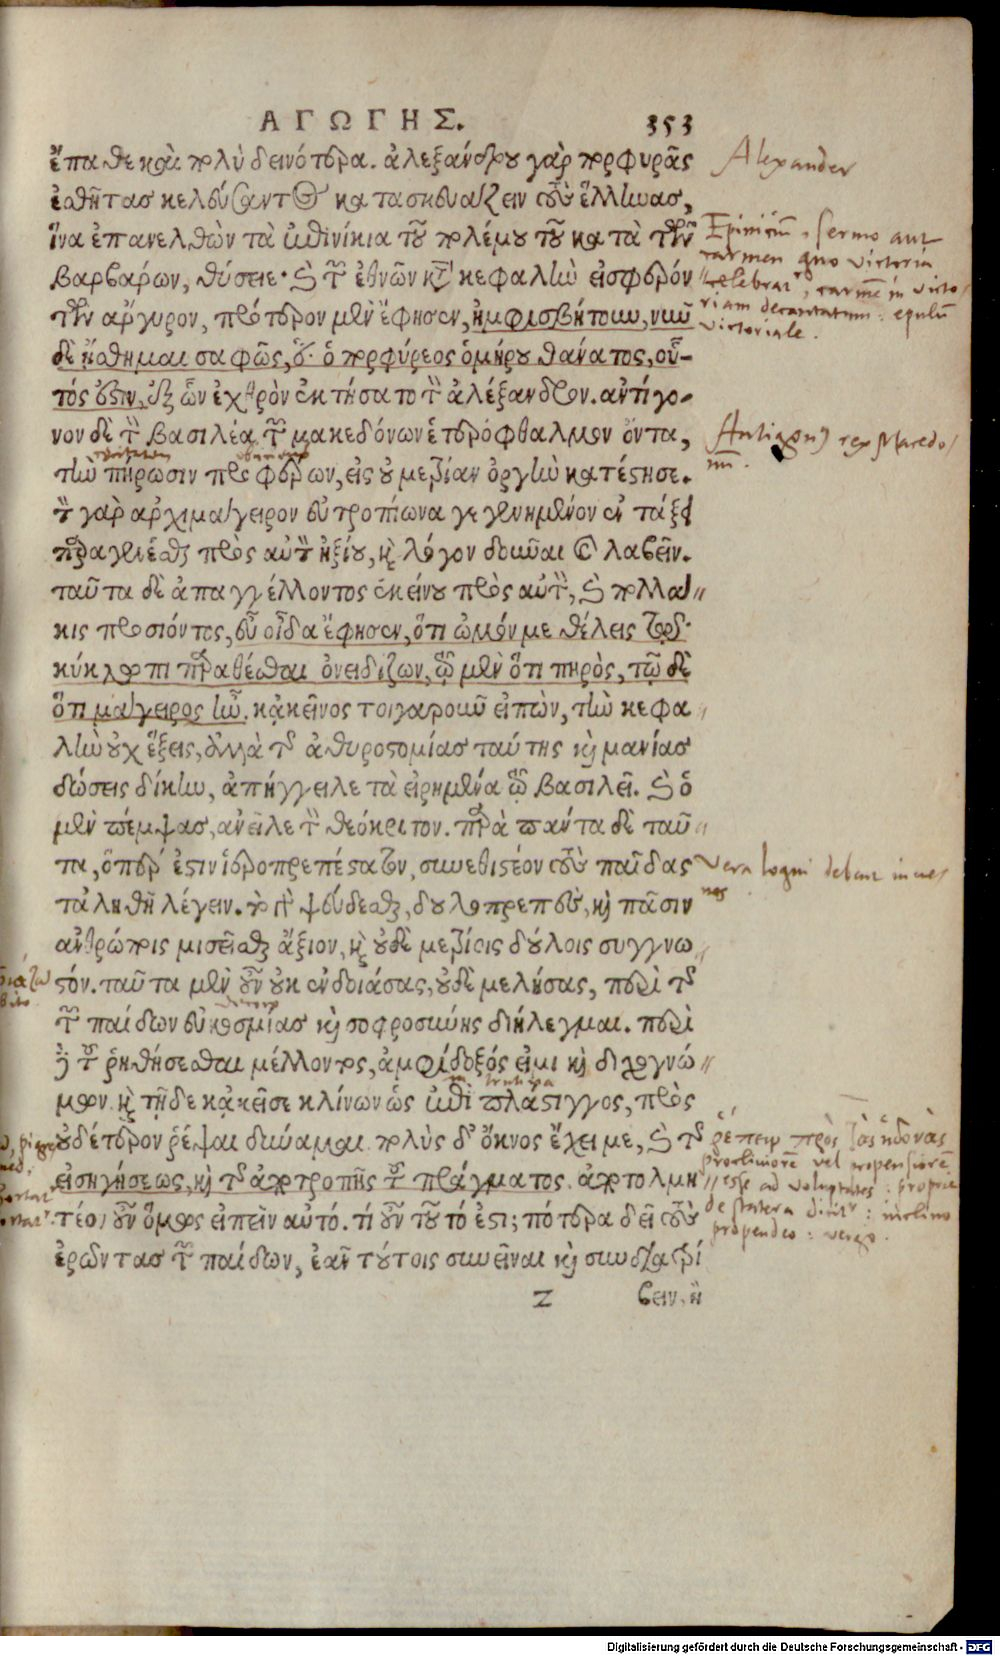 ΑΓΩΓΗΣ. 353
ἔπαθε καὶ πολὺ δεινότερα. ἀλεξάνδρου γὰρ πορφυρᾶς
ἐσθῆτας κελεύσαντος κατασκευάζειν τοὺς ἕλληνας,
ἵνα ἐπανελθὼν τὰ ἐπινίκια τοῦ πολέμου τοῦ κατὰ τῶν
βαρβάρων, θύσειε· καὶ τῶν ἐθνῶν κατὰ κεφαλὴν εἰσφερόν
των ἄργυρον, πρότερον μὲν ἔφησεν, ἠμφισβήτουν, νυνὶ
δὲ ᾔσθημαι σαφῶς, ὅτι ὁ πορφύρεος ὁμήρου θάνατος, οὗ-
τός ἐστιν, ἐξ ὧν ἐχθρὸν ἐκτήσατο τὸν ἀλέξανδρον. ἀντίγο-
νον δὲ τὸν βασιλέα τῶν μακεδόνων ἑτερόφθαλμον ὄντα,
τὴν πήρωσιν προφέρων, εἰς οὐ μετρίαν ὀργὴν κατέστησε.
τὸν γὰρ ἀρχιμάγειρον εὐτροπίωνα γεγενημένον ἐν τάξει
παραγενέσθαι πρὸς αὐτὸν ἠξίου, καὶ λόγον δοῦναι καὶ λαβεῖν.
ταῦτα δὲ ἀπαγγέλλοντος ἐκείνου πρὸς αὐτὸν, καὶ πολλά
κις προσιόντος, εὖ οἶδα ἔφησεν, ὅτι ὠμόν με θέλεις τῷ
κύκλωπι παραθέσθαι ὀνειδίζων, τὸν μὲν ὅτι πηρὸς, τῷ δὲ
ὅτι μάγειρος ἦν. κἀκεῖνος τοιγαροῦν εἰπὼν, τὴν κεφα
λὴν οὐχ ἕξεις, ἀλλὰ τῆς ἀθυροστομίας ταύτης καὶ μανίας
δώσεις δίκην, ἀπήγγειλε τὰ εἰρημένα τῷ βασιλεῖ. καὶ ὁ
μὲν πέμψας, ἀνεῖλε τὸν θεόκριτον. παρὰ πάντα δὲ ταῦ
τα, ὅπερ ἐστὶν ἱεροπρεπέστατον, συνεθιστέον τοὺς παῖδας
τἀληθῆ λέγειν. τὸ γὰρ ψεύδεσθαι, δουλοπρεπὲς, καὶ πᾶσιν
ἀνθρώποις μισεῖσθαι ἄξιον, καὶ οὐδὲ μετρίοις δούλοις συγγνω
στόν. ταῦτα μὲν οὖν οὐκ ἐνδοιάσας, οὐδὲ μελήσας, περὶ τῆς
τῶν παίδων εὐκοσμίας καὶ σοφροσύνης διήλεγμαι. περὶ
δὲ τοῦ ῥηθήσεσθαι μέλλοντος, ἀμφίδοξός εἰμι καὶ διχογνώ
μων. καὶ τῇδε κἀκεῖσε κλίνων ὡς ἐπὶ πλάστιγγος, πρὸς
οὐδέτερον ῥέψαι δύναμαι. πολὺς δ' ὄκνος ἔχει με, καὶ τῆς
εἰσηγήσεως, καὶ τῆς ἀποτροπῆς τοῦ πράγματος. ἀποτολμη
τέον οὖν ὅμως εἰπεῖν αὐτό. τί οὖν τοῦτό ἐστι; πότερα δεῖ τοὺς
ἐρῶντας τῶν παίδων, ἐᾶν τούτοις συνεῖναι καὶ συνδιατρί
z βειν, ἢ
Alexander
Epiniciũ, sermo aut
carmen quo victoria
celebratur, carmẽ in victo/
riam decantatum: epulũ
victoriale.
Antigonus rex Macedo/
nũ.
Vera loqui debent iuue/
nes
ῥέπειν πρὸς τὰς ἡδονὰς
procliuiorẽ vel propensiorẽ
esse ad voluptates: proprie
de statera dicitur: inclino
propendeo: vergo.
Digitalisierung gefördert durch die Deutsche Forschungsgemeinschaft - DFG